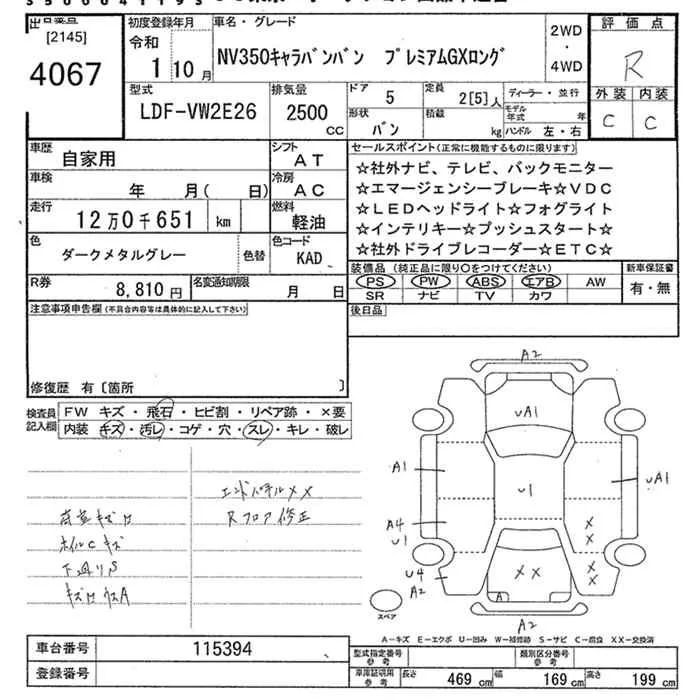 [2145]
4067
初度登録年月
令和
1 10月
車名・グレード
NV350キャラバンバン プレミアムGXロング
2WD
・
4WD
評価点
R
外装 内装
C C
型式
LDF-VW2E26
排気量
2500
CC
ドア 5
定員 2[5]人
ディーラー・並行
形状 バン
積載 kg
モデル年式 年
ハンドル 左・右
車歴
自家用
シフト
AT
車検
年 月( 日)
冷房
AC
走行
12万0千651 km
燃料
軽油
色
ダークメタルグレー
色替
色コード
KAD
R券
8,810 円
名変通知期限
月 日
セールスポイント(正常に機能するものに限ります)
☆社外ナビ、テレビ、バックモニター
☆エマージェンシーブレーキ☆VDC
☆LEDヘッドライト☆フォグライト
☆インテリキー☆プッシュスタート☆
☆社外ドライブレコーダー☆ETC☆
装備品 (純正品に限り○をつけてください)
PS PW ABS エアB AW
SR ナビ TV カワ
新車保証書
有・無
後日品
注意事項申告欄(不具合内容等は具体的に記入して下さい)
修復歴 有〔箇所 〕
検査員記入欄
FW キズ・飛石・ヒビ割・リペア跡・×要
内装 キズ・汚レ・コゲ・穴・スレ・キレ・破レ
エンドパネルXX
Rフロア修正
ホイルCキズ
下廻りS
A2
UA1
A1
UA1
U1
A4
U1
X
X
X
X
U4
A2
XX
A
A2
スペア
A-キズ E-エクボ U-凹み W-補修跡 S-サビ C-腐食 XX-交換済
車台番号
115394
登録番号
型式指定番号
参考
類別区分番号
参考
車庫証明用
参考
長さ 469 cm
幅 169 cm
高さ 199 cm